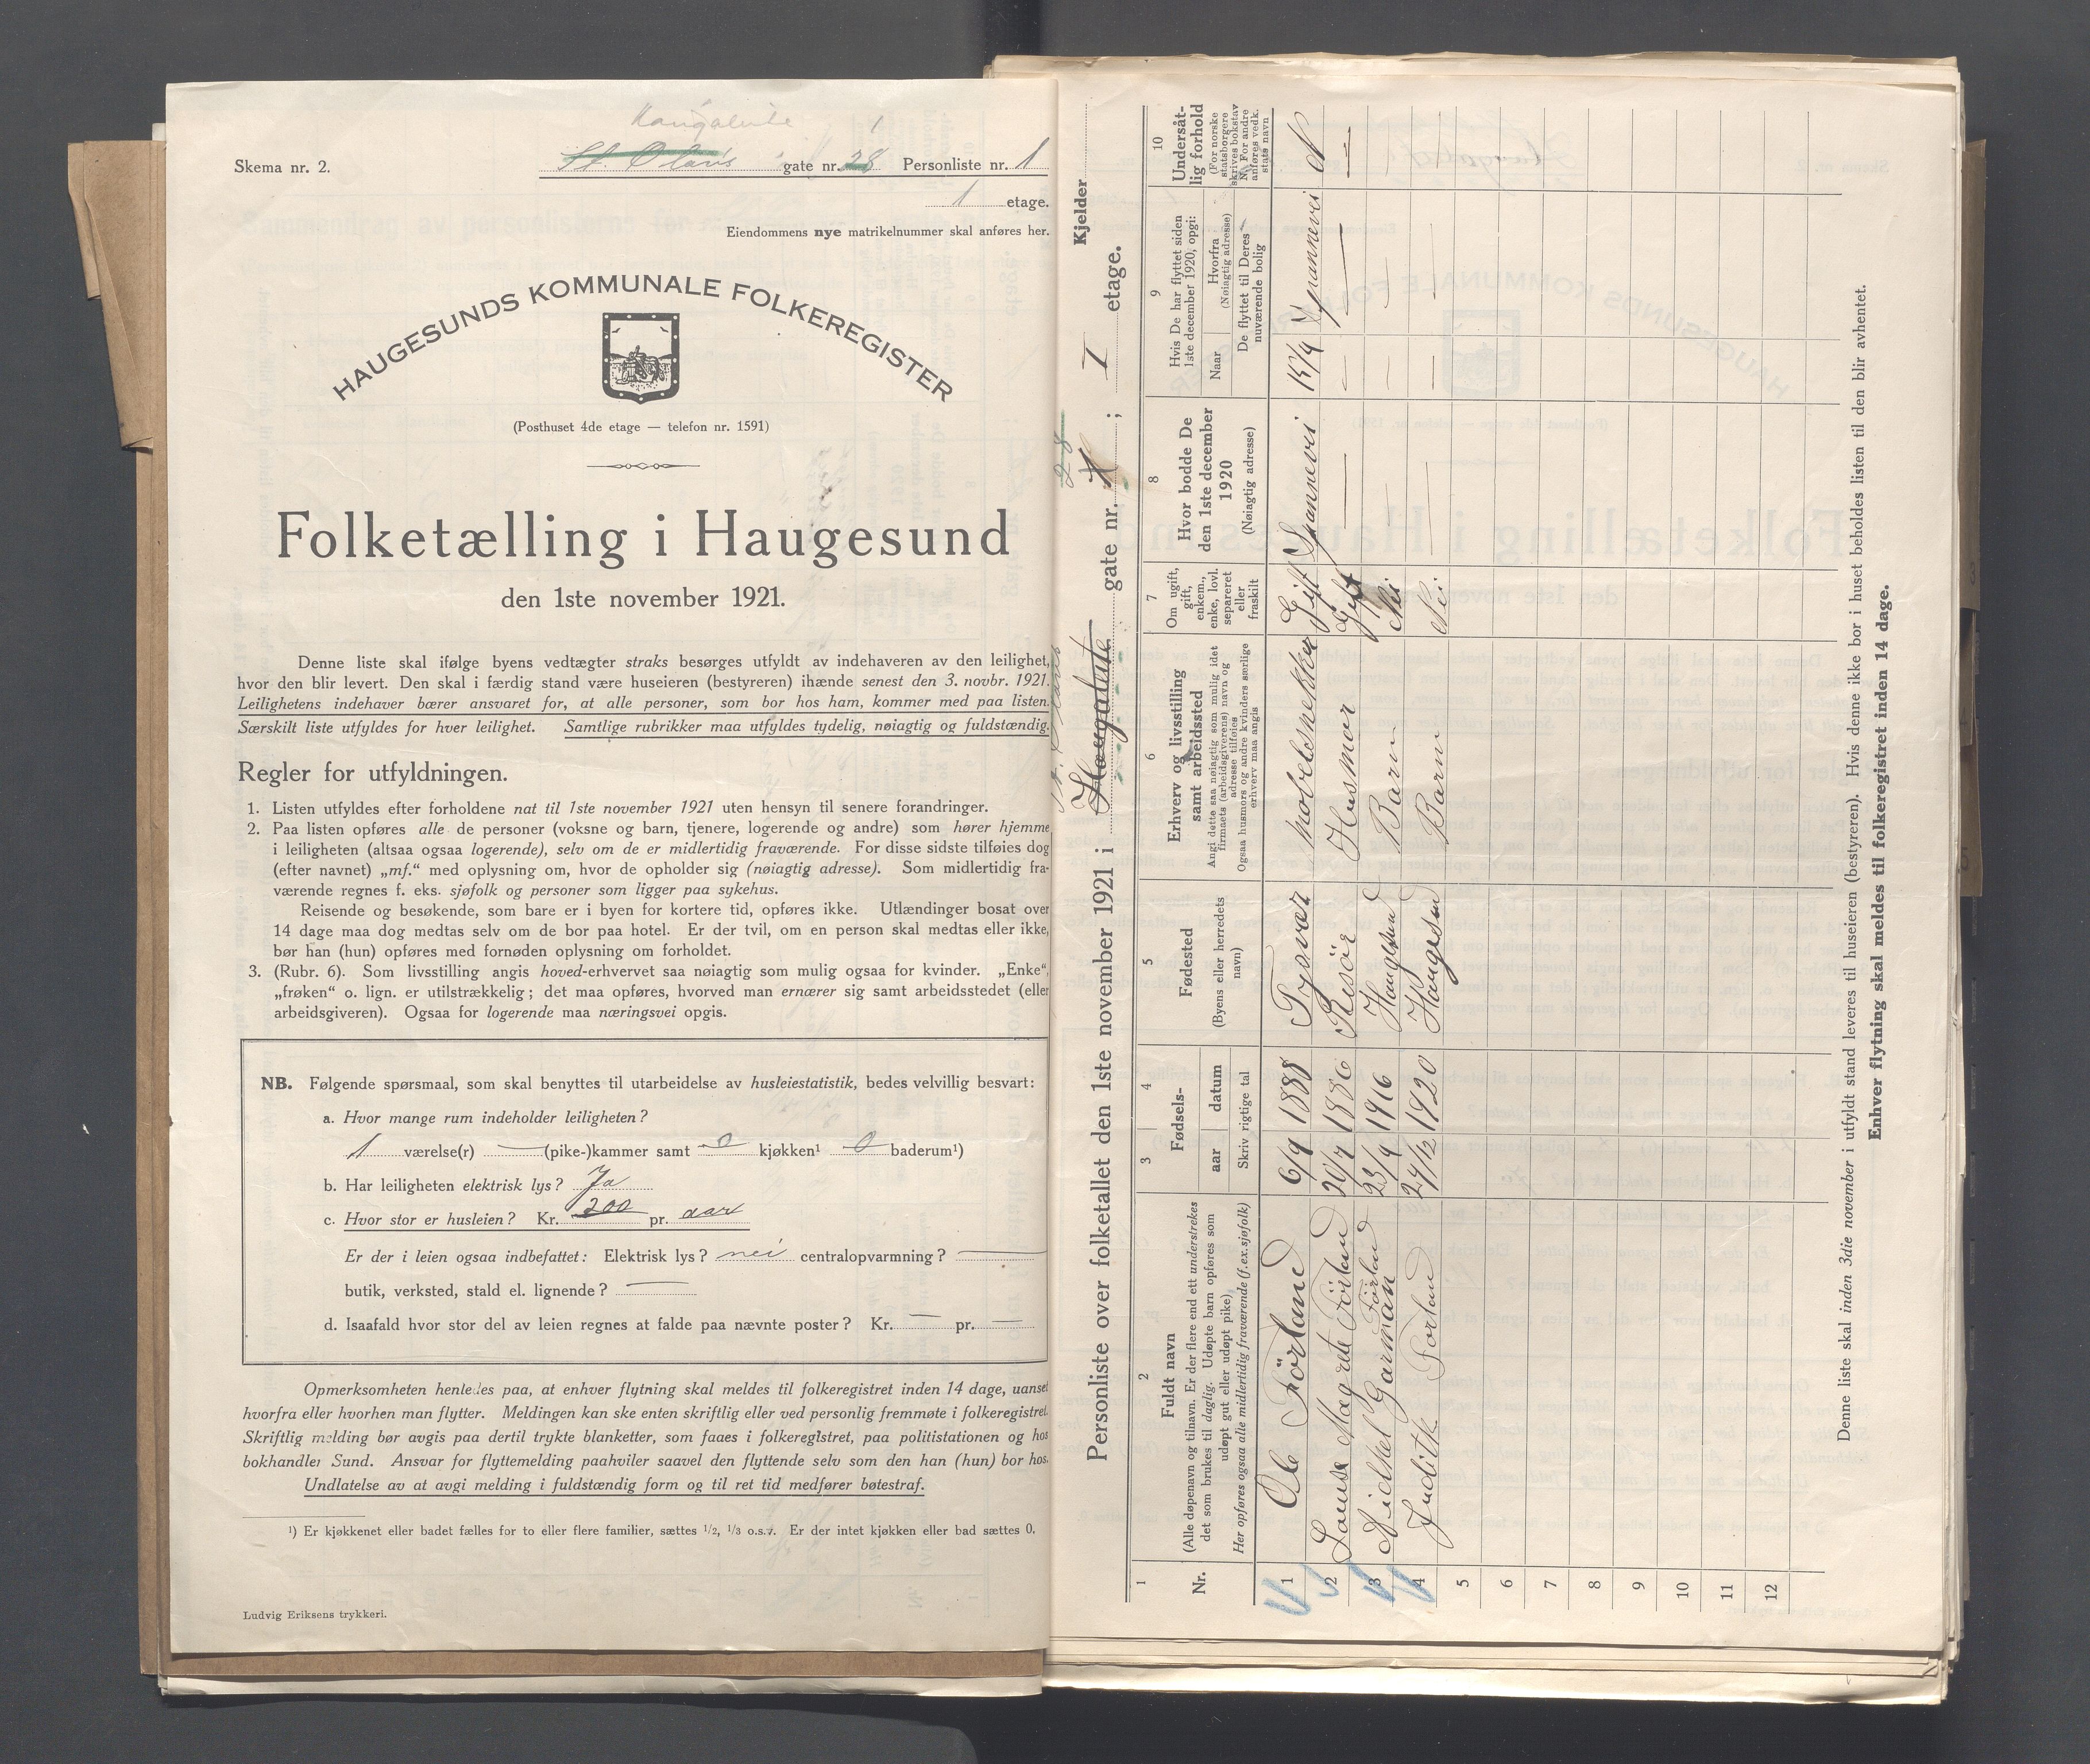 Haugaleite 1
Skema nr. 2. St. Olavs gate nr. 28 Personliste nr. 1
1 etage.
Eiendommens nye matrikelnummer skal anføres her.
HAUGESUNDS KOMMUNALE FOLKEREGISTER
(Posthuset 4de etage — telefon nr. 1591)
Folketælling i Haugesund
den 1ste november 1921.
Denne liste skal ifølge byens vedtægter straks besørges utfyldt av indehaveren av den leilighet,
hvor den blir levert. Den skal i færdig stand være huseieren (bestyreren) ihænde senest den 3. novbr. 1921.
Leilighetens indehaver bærer ansvaret for, at alle personer, som bor hos ham, kommer med paa listen.
Særskilt liste utfyldes for hver leilighet. Samtlige rubrikker maa utfyldes tydelig, nøiagtig og fuldstændig.
Regler for utfyldningen.
1. Listen utfyldes efter forholdene nat til 1ste november 1921 uten hensyn til senere forandringer.
2. Paa listen opføres alle de personer (voksne og barn, tjenere, logerende og andre) som hører hjemme
i leiligheten (altsaa ogsaa logerende), selv om de er midlertidig fraværende. For disse sidste tilføies dog
(efter navnet) „mf.“ med oplysning om, hvor de opholder sig (nøiagtig adresse). Som midlertidig fra-
værende regnes f. eks. sjøfolk og personer som ligger paa sykehus.
Reisende og besøkende, som bare er i byen for kortere tid, opføres ikke. Utlændinger bosat over
14 dage maa dog medtas selv om de bor paa hotel. Er der tvil, om en person skal medtas eller ikke,
bør han (hun) opføres med fornøden oplysning om forholdet.
3. (Rubr. 6). Som livsstilling angis hoved-erhvervet saa nøiagtig som mulig ogsaa for kvinder. „Enke“,
„frøken“ o. lign. er utilstrækkelig; det maa opføres, hvorved man ernærer sig samt arbeidsstedet (eller
arbeidsgiveren). Ogsaa for logerende maa næringsvei opgis.
NB. Følgende spørsmaal, som skal benyttes til utarbeidelse av husleiestatistik, bedes velvillig besvart:
a. Hvor mange rum indeholder leiligheten?
1 værelse(r) — (pike-)kammer samt 0 kjøkken¹ 0 baderum¹)
b. Har leiligheten elektrisk lys? Ja
c. Hvor stor er husleien? Kr. 300 pr. aar
Er der i leien ogsaa indbefattet: Elektrisk lys? nei centralopvarmning? —
butik, verksted, stald el. lignende? —
d. Isaafald hvor stor del av leien regnes at falde paa nævnte poster? Kr. — pr. —
Opmerksomheten henledes paa, at enhver flytning skal meldes til folkeregistret inden 14 dage, uanset
hvorfra eller hvorhen man flytter. Meldingen kan ske enten skriftlig eller ved personlig fremmøte i folkeregistret.
Skriftlig melding bør avgis paa dertil trykte blanketter, som faaes i folkeregistret, paa politistationen og hos
bokhandler Sund. Ansvar for flyttemelding paahviler saavel den flyttende selv som den han (hun) bor hos.
Undlatelse av at avgi melding i fuldstændig form og til ret tid medfører bøtestraf.
¹) Er kjøkkenet eller badet fælles for to eller flere familier, sættes 1/2, 1/3 o.s.v. Er der intet kjøkken eller bad sættes 0.
Ludvig Eriksens trykkeri.
St. Olavs 28 Kjelder
Personliste over folketallet den 1ste november 1921 i Haugaleite gate nr. 1; I etage.
1 2 3 4 5 6 7 8 9 10
Nr.
Fuldt navn
(Alle døpenavn og tilnavn. Er der flere end ett understrekes
det som brukes til daglig. Udøpte barn opføres som
udøpt gut eller udøpt pike)
Her opføres ogsaa alle midlertidig fraværende (f.ex.sjøfolk)
Fødsels-
aar datum
Skriv rigtige tal
Fødested
(Byens eller herredets
navn)
Erhverv og livsstilling
samt arbeidssted
Angi dette saa nøiagtig som mulig idet
firmaets (arbeidsgiverens) navn og
adresse tilføies
Ogsaa husmors og andre kvinders særlige
erhverv maa angis
Om ugift,
gift,
enkem.,
enke, lovl.
separeret
eller
fraskilt
Hvor bodde De
den 1ste december
1920
(Nøiagtig adresse)
Hvis De har flyttet siden
1ste december 1920, opgi:
Naar
Hvorfra
(Nøiagtig adresse)
De flyttet til Deres
nuværende bolig
Undersåt-
lig forhold
(For norske
statsborgere
skrives bokstav
N. For andre
anføres vedk.
stats navn
1 Ole Förland 6/9 1888 Tysvær Møbelsnekker Gift Spannevei 15/9 Spannevei N
2 Louise Magrete Förland 20/7 1886 Risör Husmor Gift — — — —
3 Aidkel Garmann Förland 23/9 1916 Haugesund Barn Nei — — —
4 Judith Förland 24/12 1920 Haugesund Barn Nei — — —
5
6
7
8
9
10
11
12
Denne liste skal inden 3die november i utfyldt stand leveres til huseieren (bestyreren). Hvis denne ikke bor i huset beholdes listen til den blir avhentet.
Enhver flytning skal meldes til folkeregistret inden 14 dage.